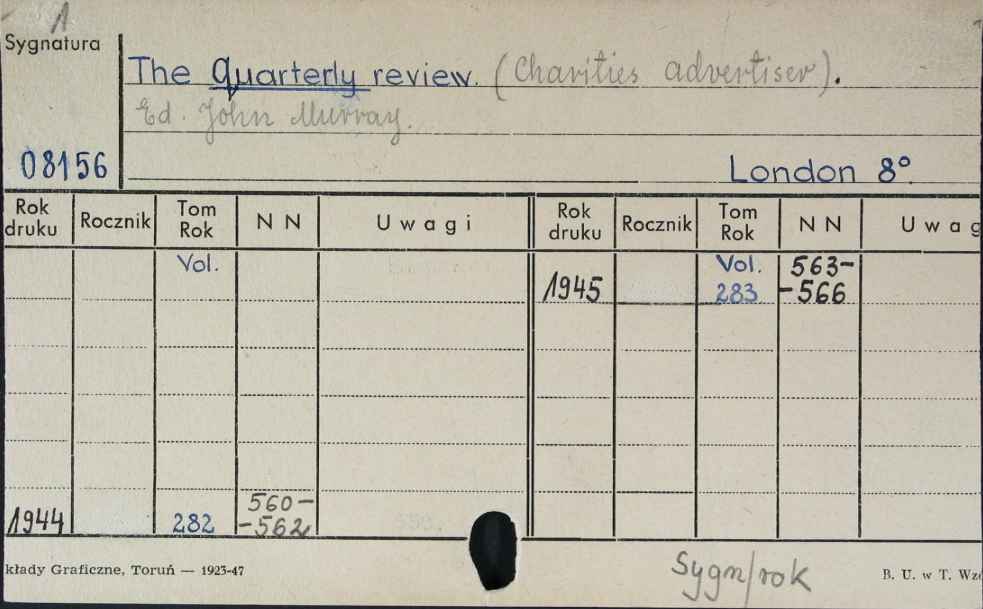 1
Sygnatura
The quarterly review. (Charities advertiser).
Ed. John Murray.
08156
London 8°
Rok druku Rocznik Tom Rok N N Uwagi Rok druku Rocznik Tom Rok N N Uwag
Vol. Vol. 563-
1945 283 -566
560-
1944 282 -562
Sygn/rok
kłady Graficzne, Toruń — 1923-47 B. U. w T. Wzó